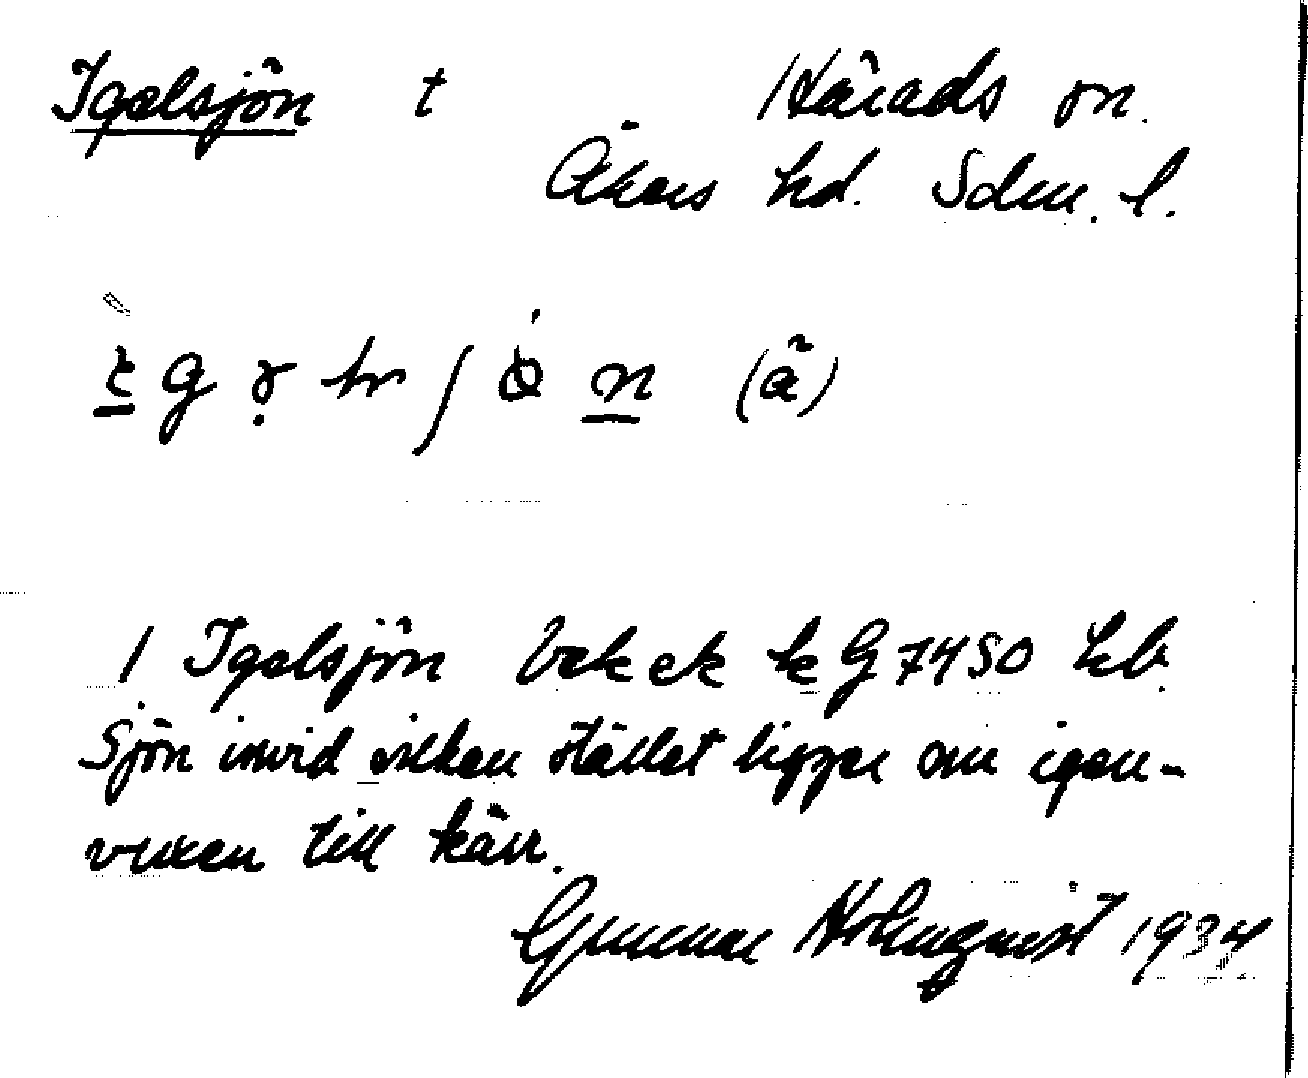 Igelsjön t Härads sn.
Åkers hd. Sdm. l.
(ä)
1 Igelsjön Bek ek k G 7450 hb.
Sjön invid vilken stället ligger om igen-
vuxen till kärr.
Gunnar Holmqvist 1934